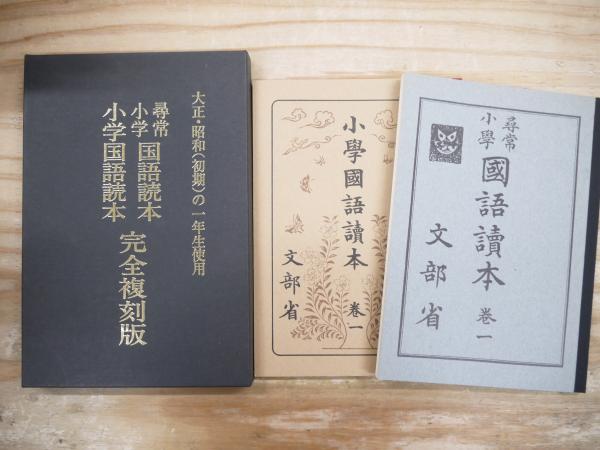 大正・昭和(初期)の一年生使用
尋常
小学
国語読本
小学国語読本
完全複刻版
小學國語讀本
卷一
文部省
尋常
小學
國語讀本
卷一
文部省